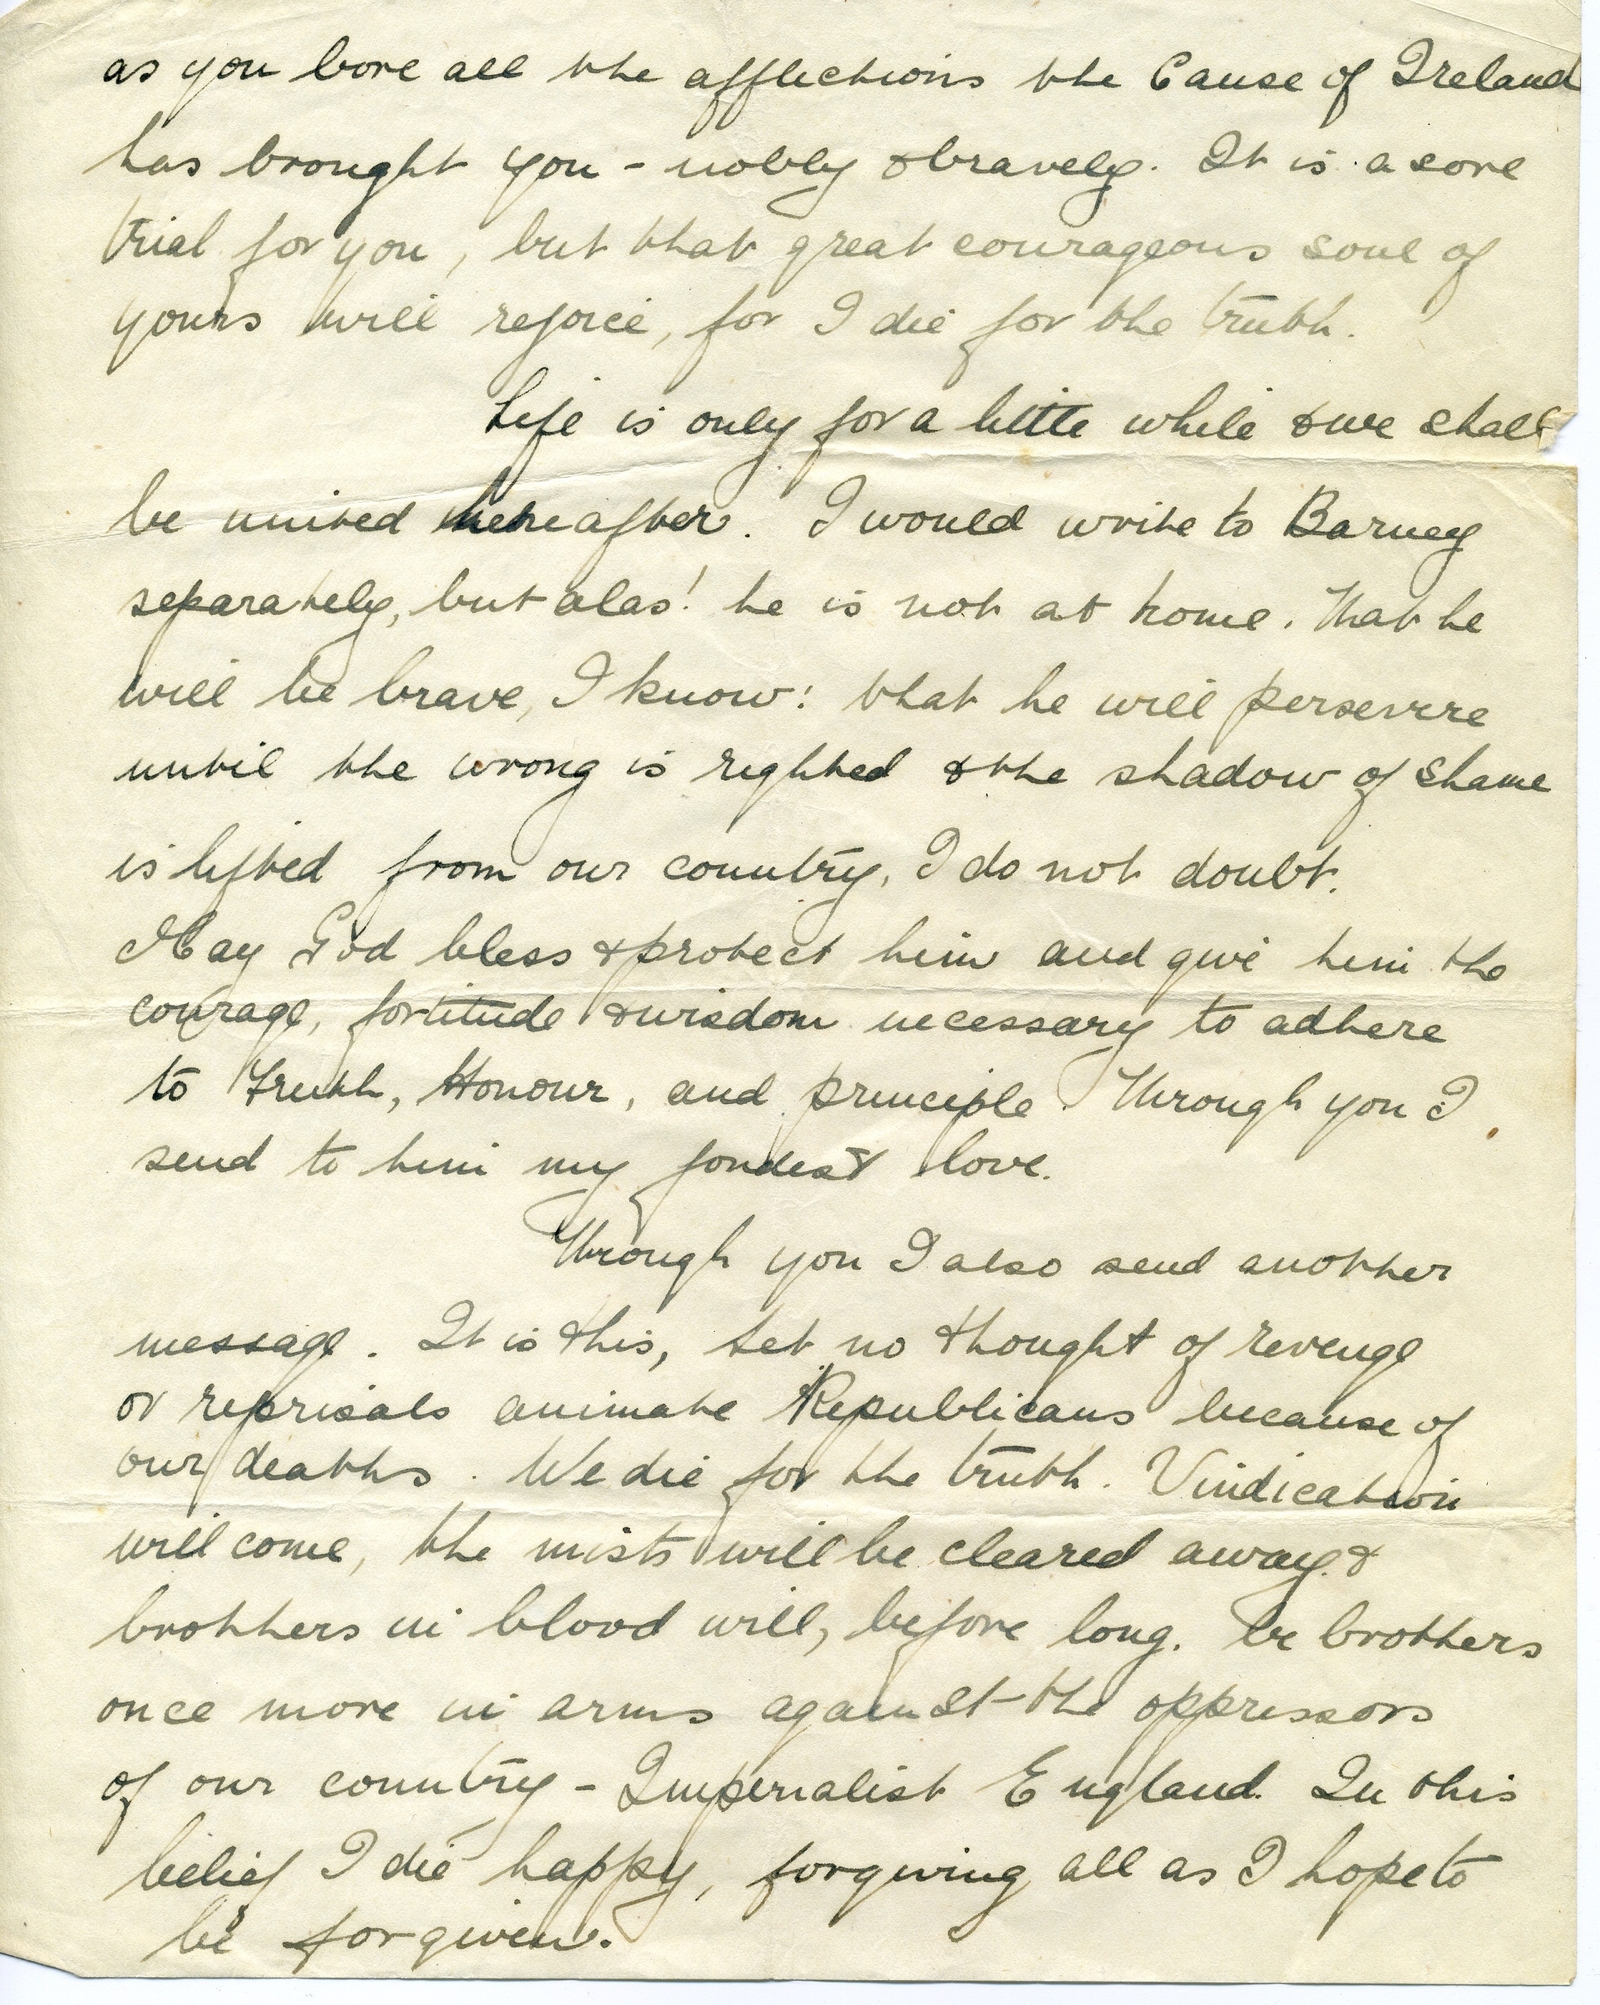 as you bore all the afflictions the Cause of Ireland
has brought you - nobly & bravely. It is a sore
trial for you, but that great courageous soul of
yours will rejoice, for I die for the truth.
Life is only for a little while & we shall
be united hereafter. I would write to Barney
separately, but alas! he is not at home. That he
will be brave, I know: that he will persevere
until the wrong is righted & the shadow of shame
is lifted from our country, I do not doubt.
May God bless & protect him and give him the
courage, fortitude & wisdom necessary to adhere
to Truth, Honour, and principle. Through you I
send to him my fondest love.
Through you I also send another
message. It is this, Let no thought of revenge
or reprisals animate Republicans because of
our deaths. We die for the truth. Vindication
will come, the mists will be cleared away &
brothers in blood will, before long, be brothers
once more in arms against the oppressors
of our country - Imperialist England. In this
belief I die happy, forgiving all as I hope to
be forgiven.